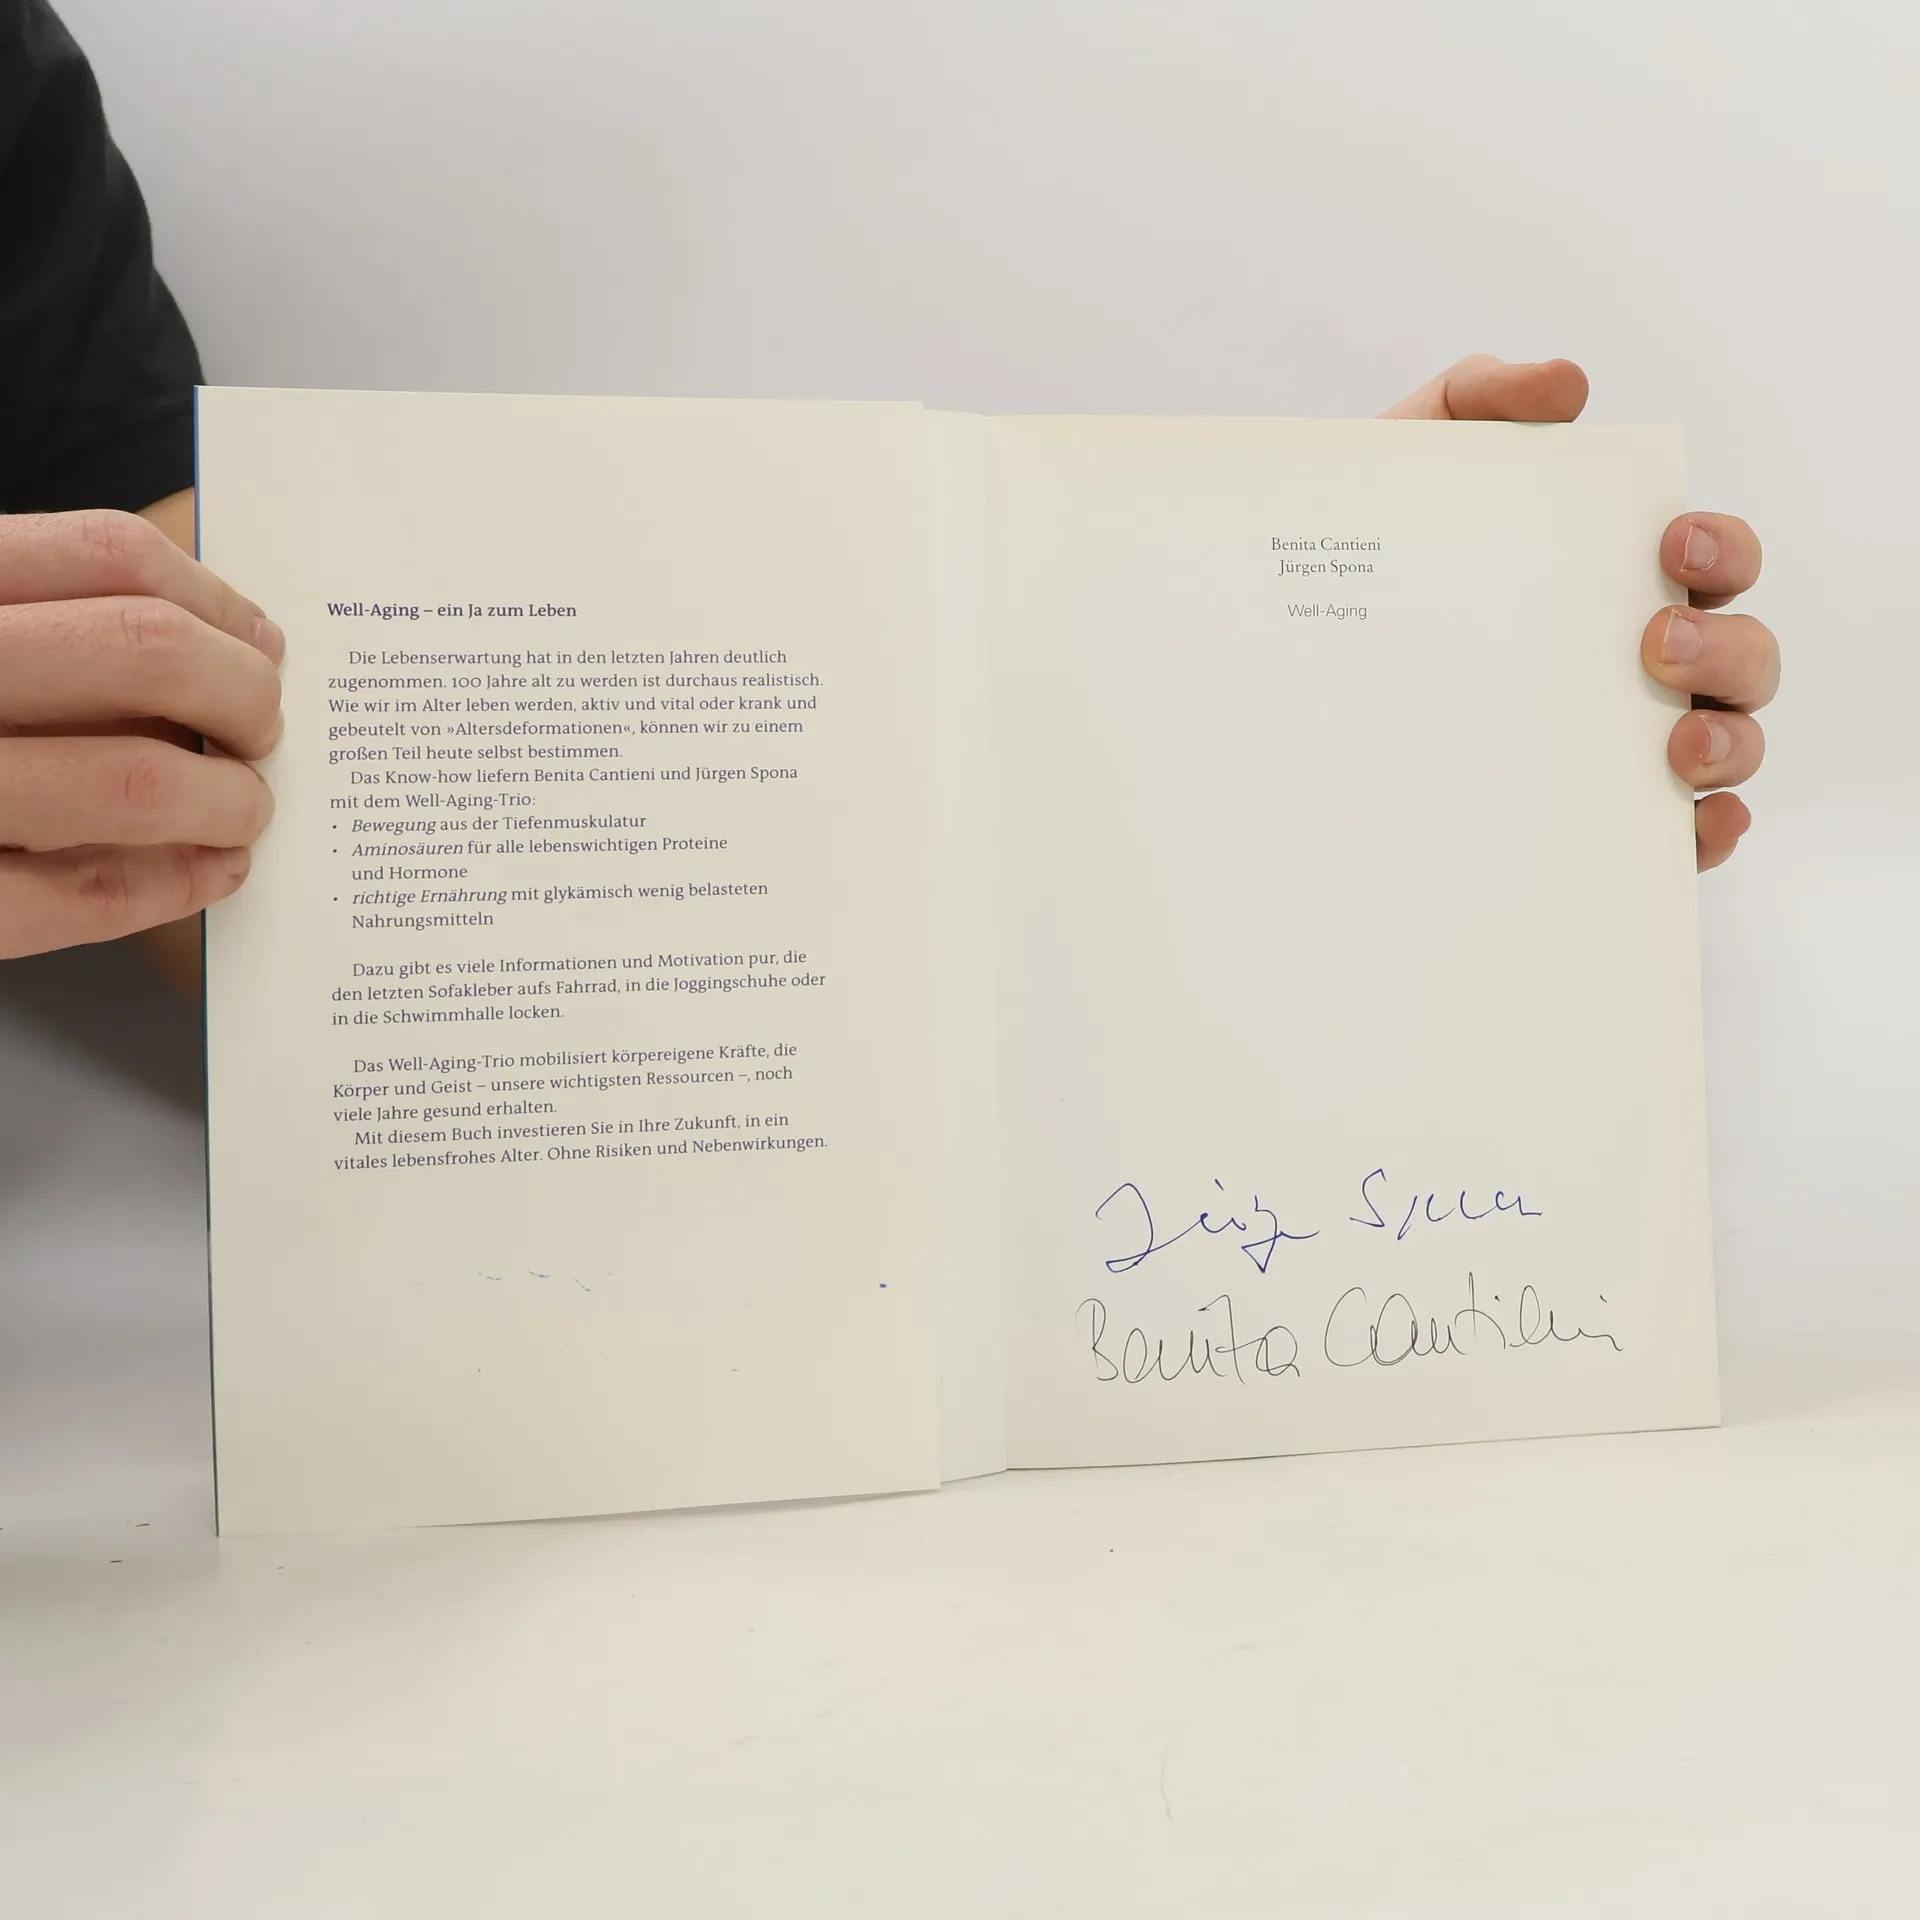 Well-Aging – ein Ja zum Leben
Die Lebenserwartung hat in den letzten Jahren deutlich
zugenommen. 100 Jahre alt zu werden ist durchaus realistisch.
Wie wir im Alter leben werden, aktiv und vital oder krank und
gebeutelt von »Altersdeformationen«, können wir zu einem
großen Teil heute selbst bestimmen.
Das Know-how liefern Benita Cantieni und Jürgen Spona
mit dem Well-Aging-Trio:
• Bewegung aus der Tiefenmuskulatur
• Aminosäuren für alle lebenswichtigen Proteine
und Hormone
• richtige Ernährung mit glykämisch wenig belasteten
Nahrungsmitteln
Dazu gibt es viele Informationen und Motivation pur, die
den letzten Sofakleber aufs Fahrrad, in die Joggingschuhe oder
in die Schwimmhalle locken.
Das Well-Aging-Trio mobilisiert körpereigene Kräfte, die
Körper und Geist – unsere wichtigsten Ressourcen –, noch
viele Jahre gesund erhalten.
Mit diesem Buch investieren Sie in Ihre Zukunft, in ein
vitales lebensfrohes Alter. Ohne Risiken und Nebenwirkungen.
Benita Cantieni
Jürgen Spona
Well-Aging
Jürgen Spona
Benita Cantieni